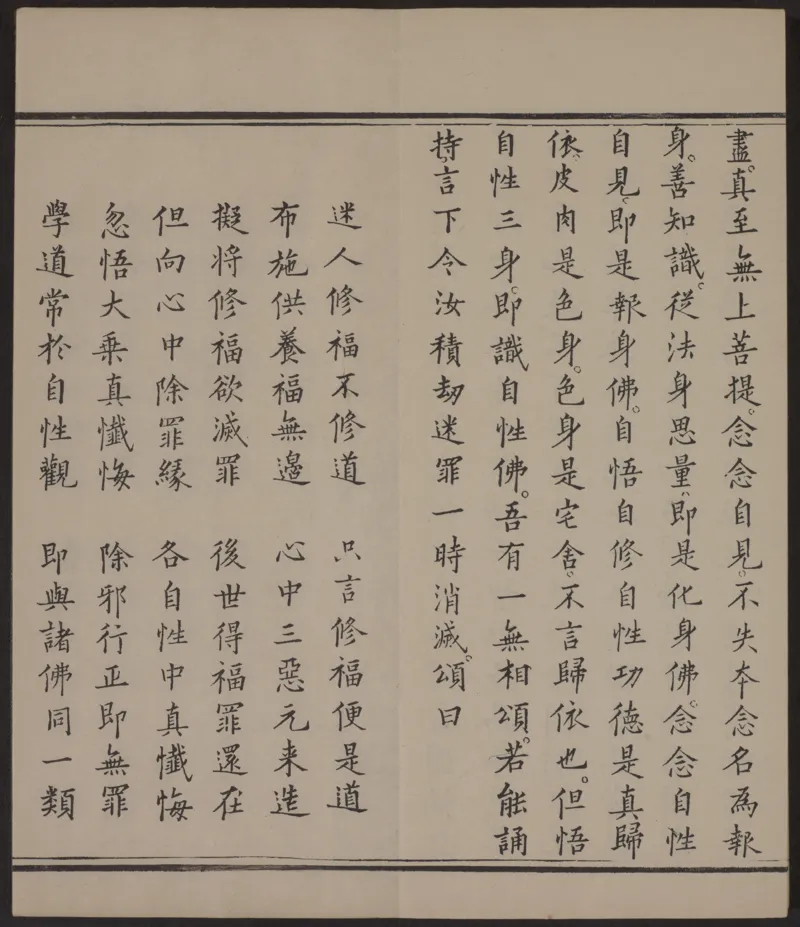 盡。真至無上菩提。念念自見。不失本念名為報
身。善知識。從法身思量。即是化身佛。念念自性
自見。即是報身佛。自悟自修自性功德是真歸
依。皮肉是色身。色身是宅舍。不言歸依也。但悟
自性三身。即識自性佛。吾有一無相頌。若能誦
持。言下令汝積劫迷罪一時消滅。頌曰
迷人修福不修道　只言修福便是道
布施供養福無邊　心中三惡元来造
擬將修福欲滅罪　後世得福罪還在
但向心中除罪緣　各自性中真懺悔
忽悟大乘真懺悔　除邪行正即無罪
學道常於自性觀　即與諸佛同一類